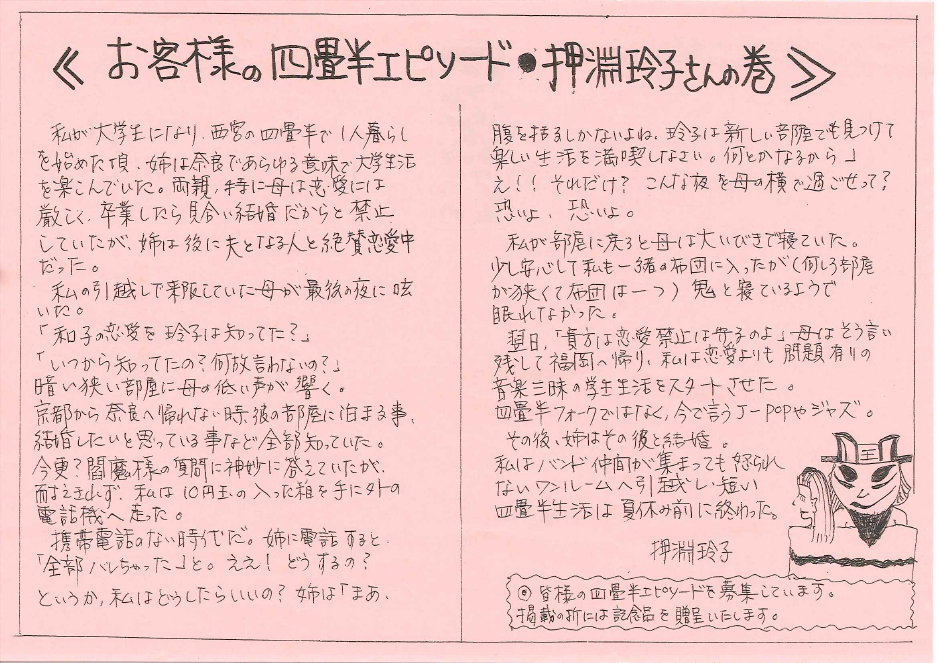 ≪ お客様の四畳半エピソード●押淵玲子さんの巻 ≫
私が大学生になり、西宮の四畳半で1人暮らし
を始めた頃、姉は奈良であらゆる意味で大学生活
を楽こんでいた。両親、特に母は恋愛には
厳しく、卒業したら見合い結婚だからと禁止
していたが、姉は後に夫となる人と絶賛恋愛中
だった。
私の引越しで来阪していた母が最後の夜に呟
いた。
「和子の恋愛を玲子は知ってた?」
「いつから知ってたの?何故言わないの?」
暗い狭い部屋に母の低い声が響く。
京都から奈良へ帰れない時、彼の部屋に泊まる事、
結婚したいと思っている事など全部知っていた。
今更?閻魔様の質問に神妙に答えていたが、
耐えきれず、私は10円玉の入った箱を手に外の
電話機へ走った。
携帯電話のない時代だ。姉に電話すると、
「全部バレちゃった」と。ええ!どうするの?
というか、私はどうしたらいいの?姉は「まあ、
腹を括るしかないよね。玲子は新しい部屋でも見つけて
楽しい生活を満喫しなさい。何とかなるから」
え!!それだけ?こんな夜を母の横で過ごせって?
恐いよ、恐いよ。
私が部屋に戻ると母は大いびきで寝ていた。
少し安心して私も一緒の布団に入ったが(何しろ部屋
が狭くて布団は一つ)鬼と寝ているようで
眠れなかった。
翌日、「貴方は恋愛禁止は守るのよ」母はそう言い
残して福岡へ帰り、私は恋愛よりも問題有りの
音楽三昧の学生生活をスタートさせた。
四畳半フォークではなく、今で言うJ-POPやジャズ。
その後、姉はその彼と結婚。
私はバンド仲間が集まっても怒られ
ないワンルームへ引越し、短い
四畳半生活は夏休み前に終わった。
押淵玲子
◎皆様の四畳半エピソードを募集しています。
掲載の折には記念品を贈呈いたします。